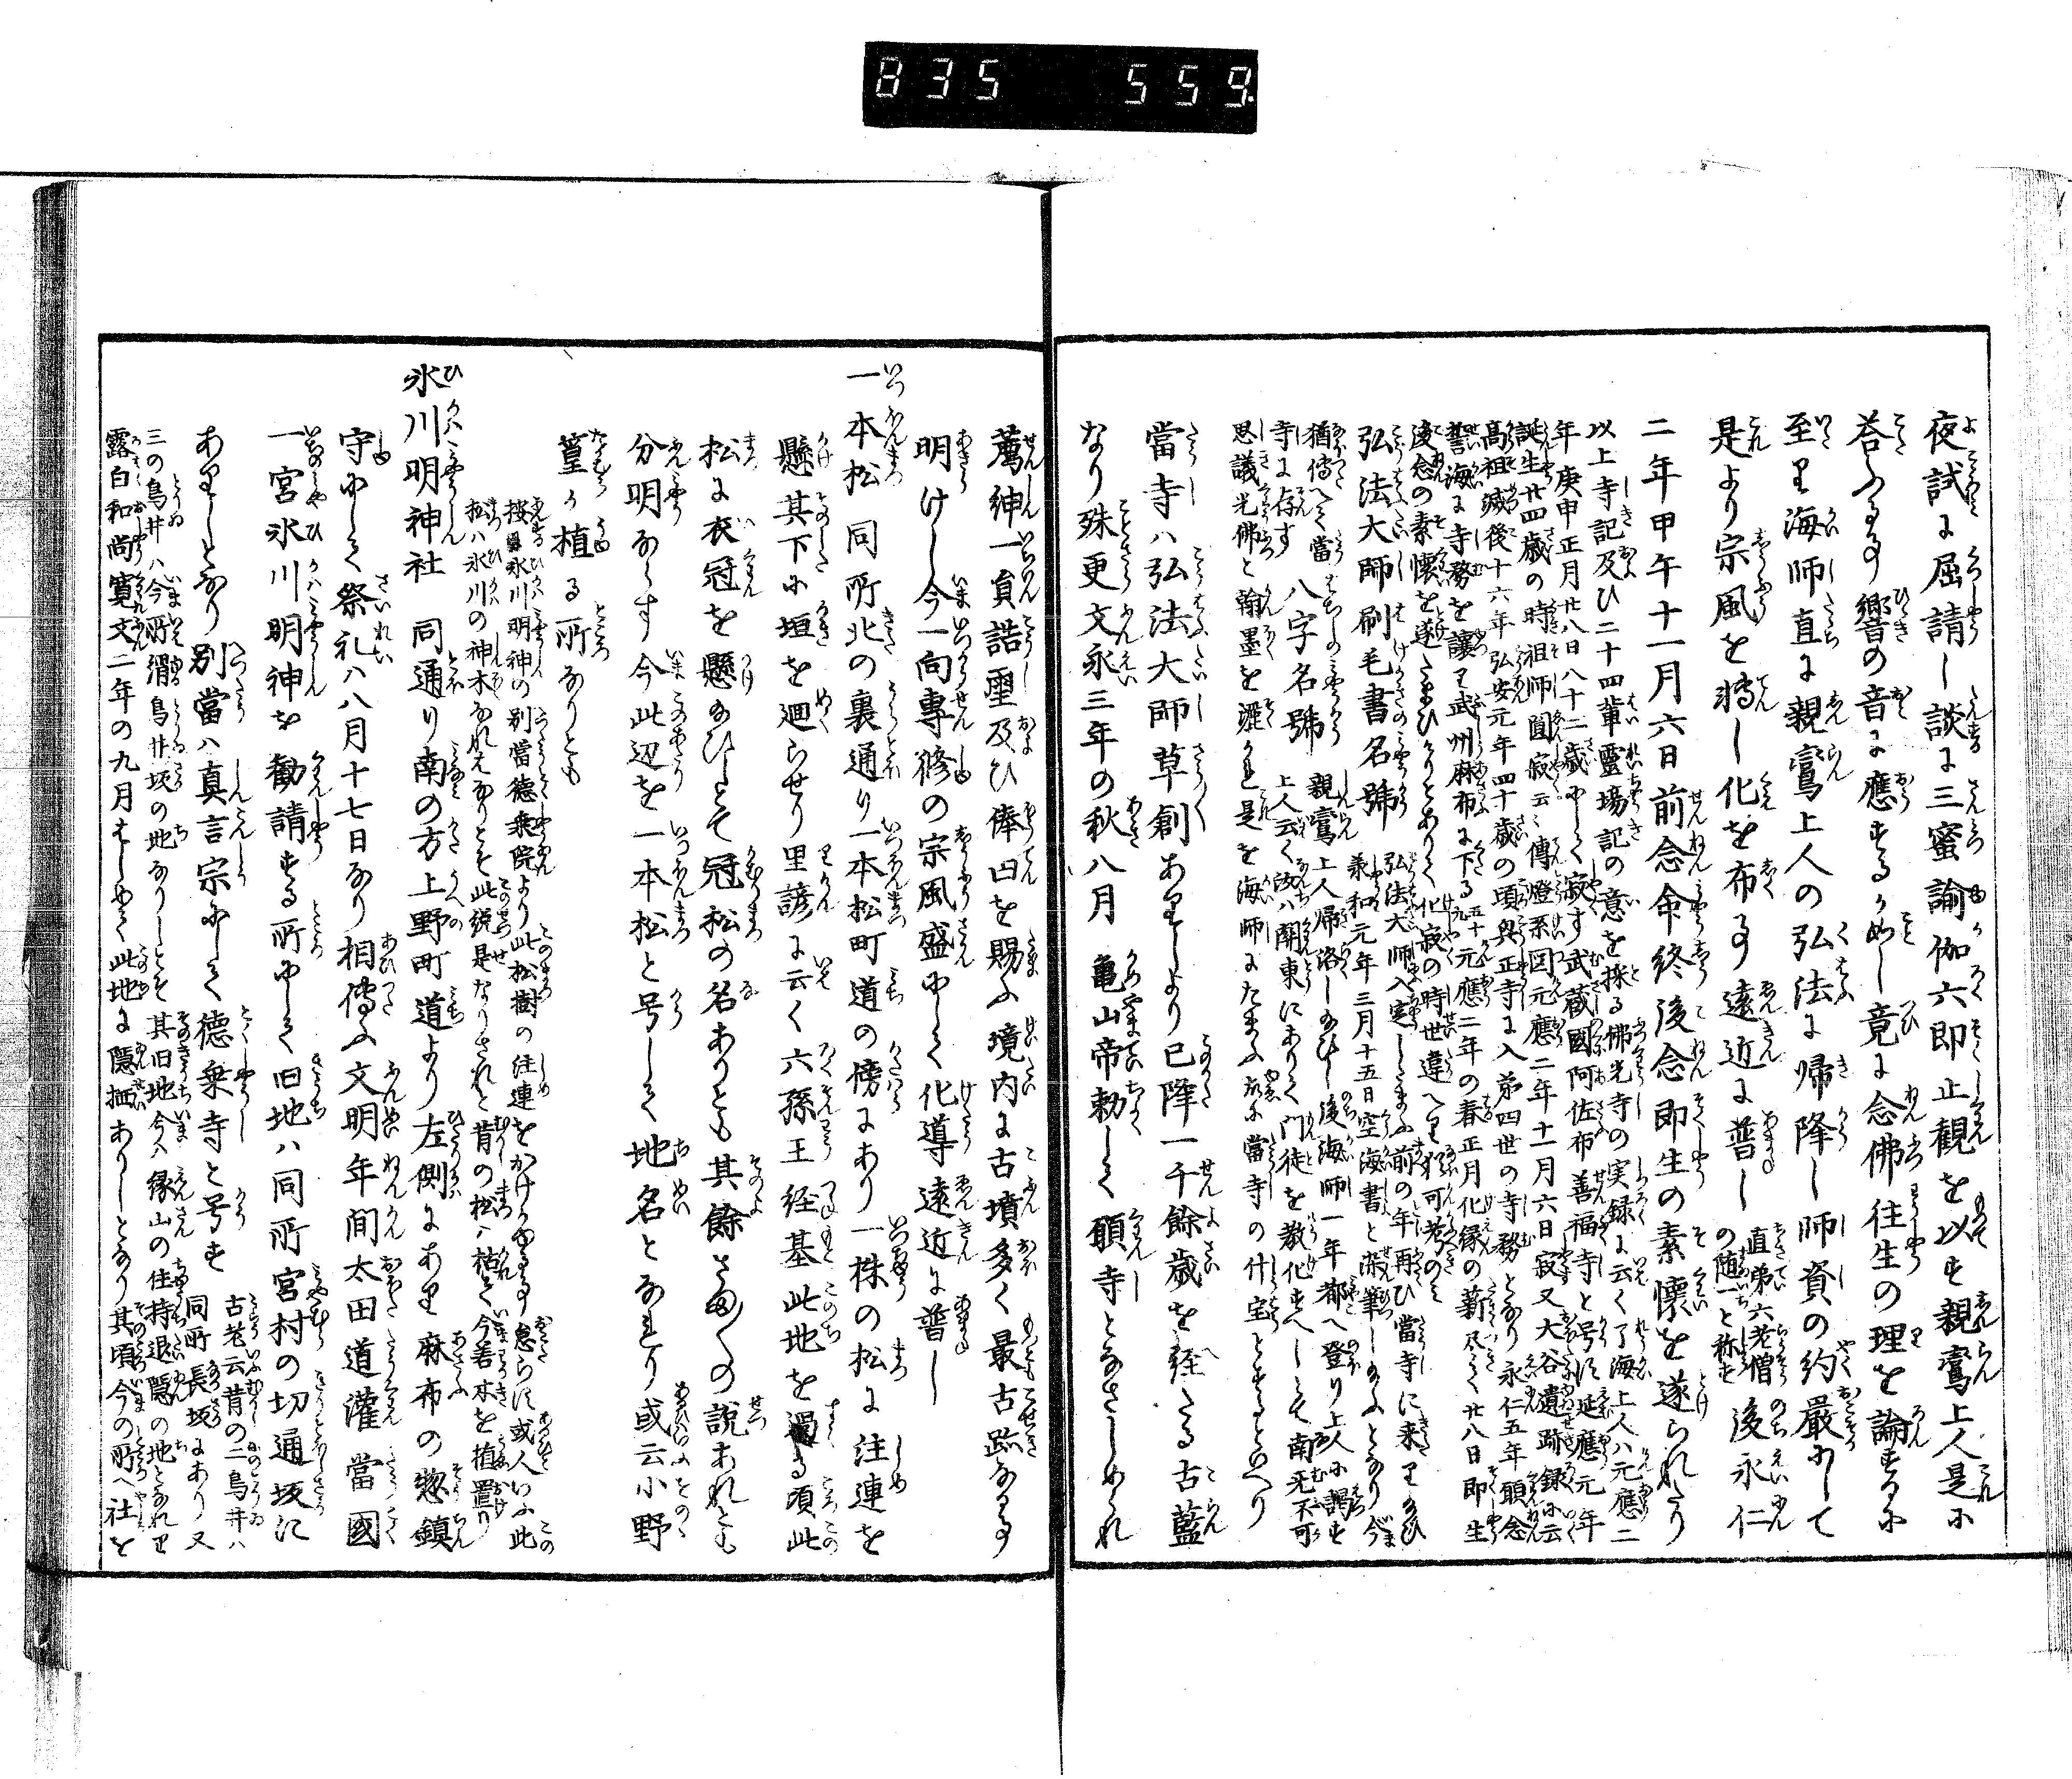 835 559
夜試に屈請し談に三蜜諭伽六即止観を以す親鸞上人是に
答ふる事響の音に應するかめし竟に念佛往生の理を論するに
至り海師直に親鸞上人の弘法に帰降し師資の約厳にして
是より宗風を轉し化を布る事遠近に普し 直弟六老僧の随一と称す 後永仁
二年甲午十一月六日前念命終後念即生の素懐を遂られたり
以上寺記及ひ二十四輩霊場記の意を採る佛光寺の実録に云く了海上人ハ元應二
年庚申正月廿八日八十二歳にして寂す武蔵國阿佐布善福寺と号す延應元年
誕生廿四歳の時祖師圓寂云々傳燈系図元應二年十一月六日寂又大谷遺跡録に云
高祖滅後十六年弘安元年四十歳の頃興正寺に入第四世の寺務となり永仁五年願念
誓海に寺務を譲り武州麻布に下る五十九元應二年の春正月化縁の薪尽て廿八日即生
後念の素懐を遂たまひけりとありて化寂の時世違へり可考のミ
弘法大師刷毛書名號 弘法大師入定したまふ前の年再ひ當寺に来り給ひ
承和元年三月十五日空海書と染筆し給ふとなり今
猶傳へて當寺に存す 八字名號 親鸞上人帰洛し給ひし後海師一年都へ登り上人に謁す
上人云く汝ハ關東にありて門徒を教化すへしとて南無不可
思議光佛と翰墨を灑かれ是を海師にたまふ故に當寺の什宝とすといへり
當寺ハ弘法大師草創ありしより已降一千餘歳を経たる古藍
なり殊更文永三年の秋八月 亀山帝勅して願寺となさしめられ
薦紳一員誥璽及ひ俸田を賜ふ境内に古墳多く最古跡なる事
明けし今一向專修の宗風盛にして化導遠近に普し
一本松 同所北の裏通り一本松町道の傍にあり一株の松に注連を
懸其下に垣を廻らせり里諺に云く六孫王経基此地を過る頃此
松に衣冠を懸給ひしとて冠松の名ありとも其餘さまくの説あれとも
分明ならす今此辺を一本松と号して地名となせり或云小野
篁か植る所なりとも
按氷川明神の別當徳乗院より此松樹の注連をかけかゆる事怠らす或人いふ此
松ハ氷川の神木なれはなりとそ此説是なりされと昔の松ハ枯て今若木を植置り
氷川明神社 同通り南の方上野町道より左側にあり麻布の惣鎮
守にして祭礼ハ八月十七日なり相傳ふ文明年間太田道灌當國
一宮氷川明神を勧請する所にして旧地ハ同所宮村の切通坂に
ありしとなり別當ハ真言宗にして徳乗寺と号す 古老云昔の二鳥井ハ
同所長坂にあり又
三の鳥井ハ今所謂鳥井坂の地なりしとそ其旧地今ハ縁山の住持退隠の地となれり
露白和尚寛文二年の九月はしめて此地に隠栖ありしとなり其頃今の所へ社を